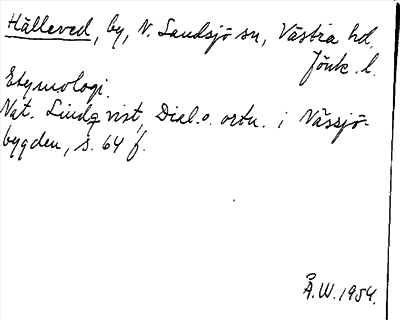 Hälleved, by, N. Sandsjö sn, Västra hd,
Jönk. l.
Etymologi.
Nat. Lindqvist, Dial. o. ortn. i Nässjö-
bygden, s. 64 f.
Å.W. 1954.